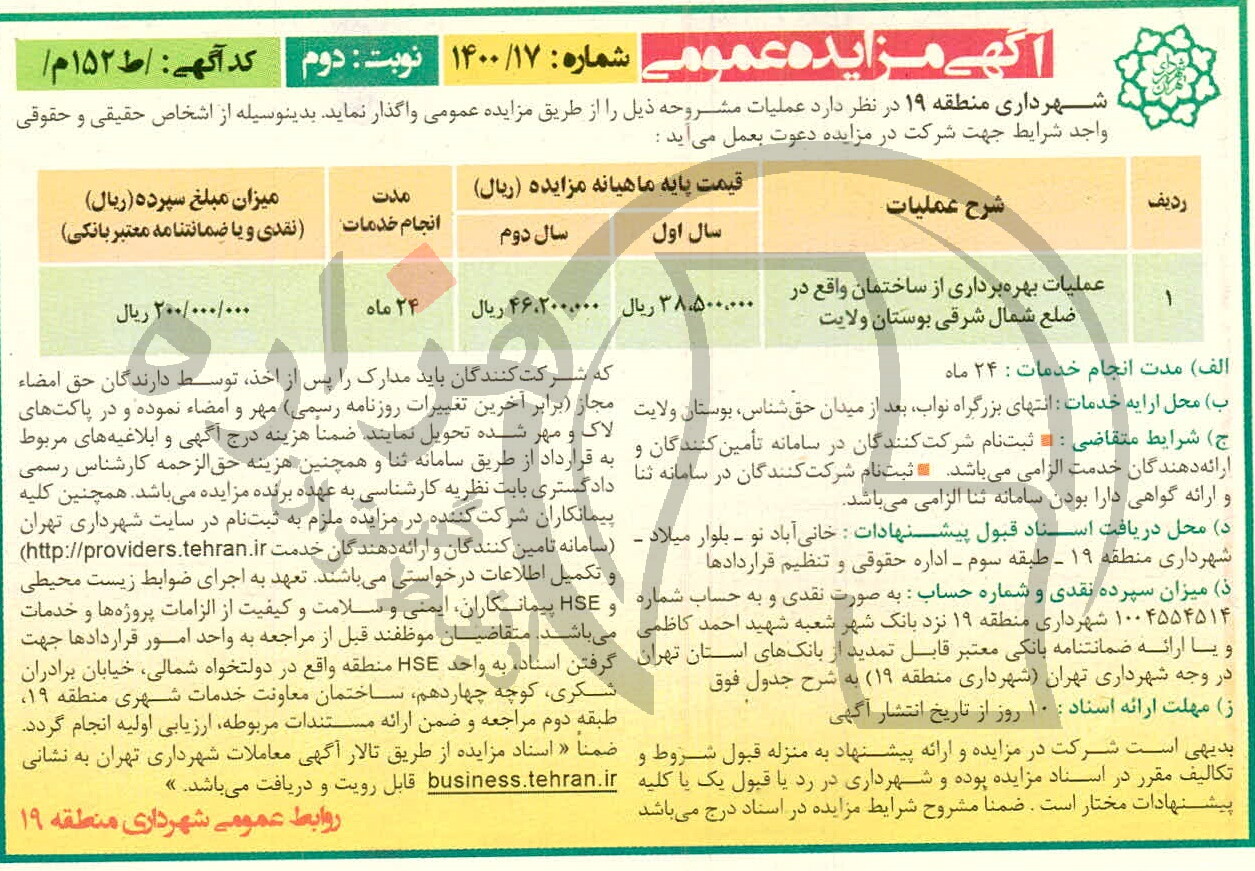 آگهی مزایده عمومی
شماره: ۱۴۰۰/۱۷
نوبت: دوم
کد آگهی: /ط۱۵۲م/
شهرداری منطقه ۱۹ در نظر دارد عملیات مشروحه ذیل را از طریق مزایده عمومی واگذار نماید. بدینوسیله از اشخاص حقیقی و حقوقی
واجد شرایط جهت شرکت در مزایده دعوت بعمل می‌آید :
ردیف
شرح عملیات
قیمت پایه ماهیانه مزایده (ریال)
سال اول
سال دوم
مدت
انجام خدمات
میزان مبلغ سپرده(ریال)
(نقدی و یا ضمانتنامه معتبر بانکی)
۱
عملیات بهره‌برداری از ساختمان واقع در
ضلع شمال شرقی بوستان ولایت
۳۸،۵۰۰،۰۰۰ ریال
۴۶،۲۰۰،۰۰۰ ریال
۲۴ ماه
۲۰۰/۰۰۰/۰۰۰ ریال
الف) مدت انجام خدمات : ۲۴ ماه
ب) محل ارایه خدمات : انتهای بزرگراه نواب، بعد از میدان حق‌شناس، بوستان ولایت
ج) شرایط متقاضی : ■ ثبت‌نام شرکت‌کنندگان در سامانه تأمین‌کنندگان و
ارائه‌دهندگان خدمت الزامی می‌باشد. ■ ثبت‌نام شرکت‌کنندگان در سامانه ثنا
و ارائه گواهی دارا بودن سامانه ثنا الزامی می‌باشد.
د) محل دریافت اسناد قبول پیشنهادات : خانی‌آباد نو ـ بلوار میلاد ـ
شهرداری منطقه ۱۹ ـ طبقه سوم ـ اداره حقوقی و تنظیم قراردادها
ذ) میزان سپرده نقدی و شماره حساب : به صورت نقدی و به حساب شماره
۱۰۰۴۵۵۴۵۱۴ شهرداری منطقه ۱۹ نزد بانک شهر شعبه شهید احمد کاظمی
و یا ارائه ضمانتنامه بانکی معتبر قابل تمدید از بانک‌های استان تهران
در وجه شهرداری تهران (شهرداری منطقه ۱۹) به شرح جدول فوق
ز) مهلت ارائه اسناد : ۱۰ روز از تاریخ انتشار آگهی
بدیهی است شرکت در مزایده و ارائه پیشنهاد به منزله قبول شروط و
تکالیف مقرر در اسناد مزایده بوده و شهرداری در رد یا قبول یک یا کلیه
پیشنهادات مختار است . ضمنا مشروح شرایط مزایده در اسناد درج می‌باشد
که شرکت‌کنندگان باید مدارک را پس از اخذ، توسط دارندگان حق امضاء
مجاز (برابر آخرین تغییرات روزنامه رسمی) مهر و امضاء نموده و در پاکت‌های
لاک و مهر شده تحویل نمایند. ضمناً هزینه درج آگهی و ابلاغیه‌های مربوط
به قرارداد از طریق سامانه ثنا و همچنین هزینه حق‌الزحمه کارشناس رسمی
دادگستری بابت نظریه کارشناسی به عهده برنده مزایده می‌باشد. همچنین کلیه
پیمانکاران شرکت‌کننده در مزایده ملزم به ثبت‌نام در سایت شهرداری تهران
(سامانه تامین‌کنندگان و ارائه‌دهندگان خدمت http://providers.tehran.ir)
و تکمیل اطلاعات درخواستی می‌باشند. تعهد به اجرای ضوابط زیست محیطی
و HSE پیمانکاران، ایمنی و سلامت و کیفیت از الزامات پروژه‌ها و خدمات
می‌باشد. متقاضیان موظفند قبل از مراجعه به واحد امور قراردادها جهت
گرفتن اسناد، به واحد HSE منطقه واقع در دولتخواه شمالی، خیابان برادران
شکری، کوچه چهاردهم، ساختمان معاونت خدمات شهری منطقه ۱۹،
طبقه دوم مراجعه و ضمن ارائه مستندات مربوطه، ارزیابی اولیه انجام گردد.
ضمناً « اسناد مزایده از طریق تالار آگهی معاملات شهرداری تهران به نشانی
business.tehran.ir قابل رویت و دریافت می‌باشد. »
روابط عمومی شهرداری منطقه ۱۹
هزاره